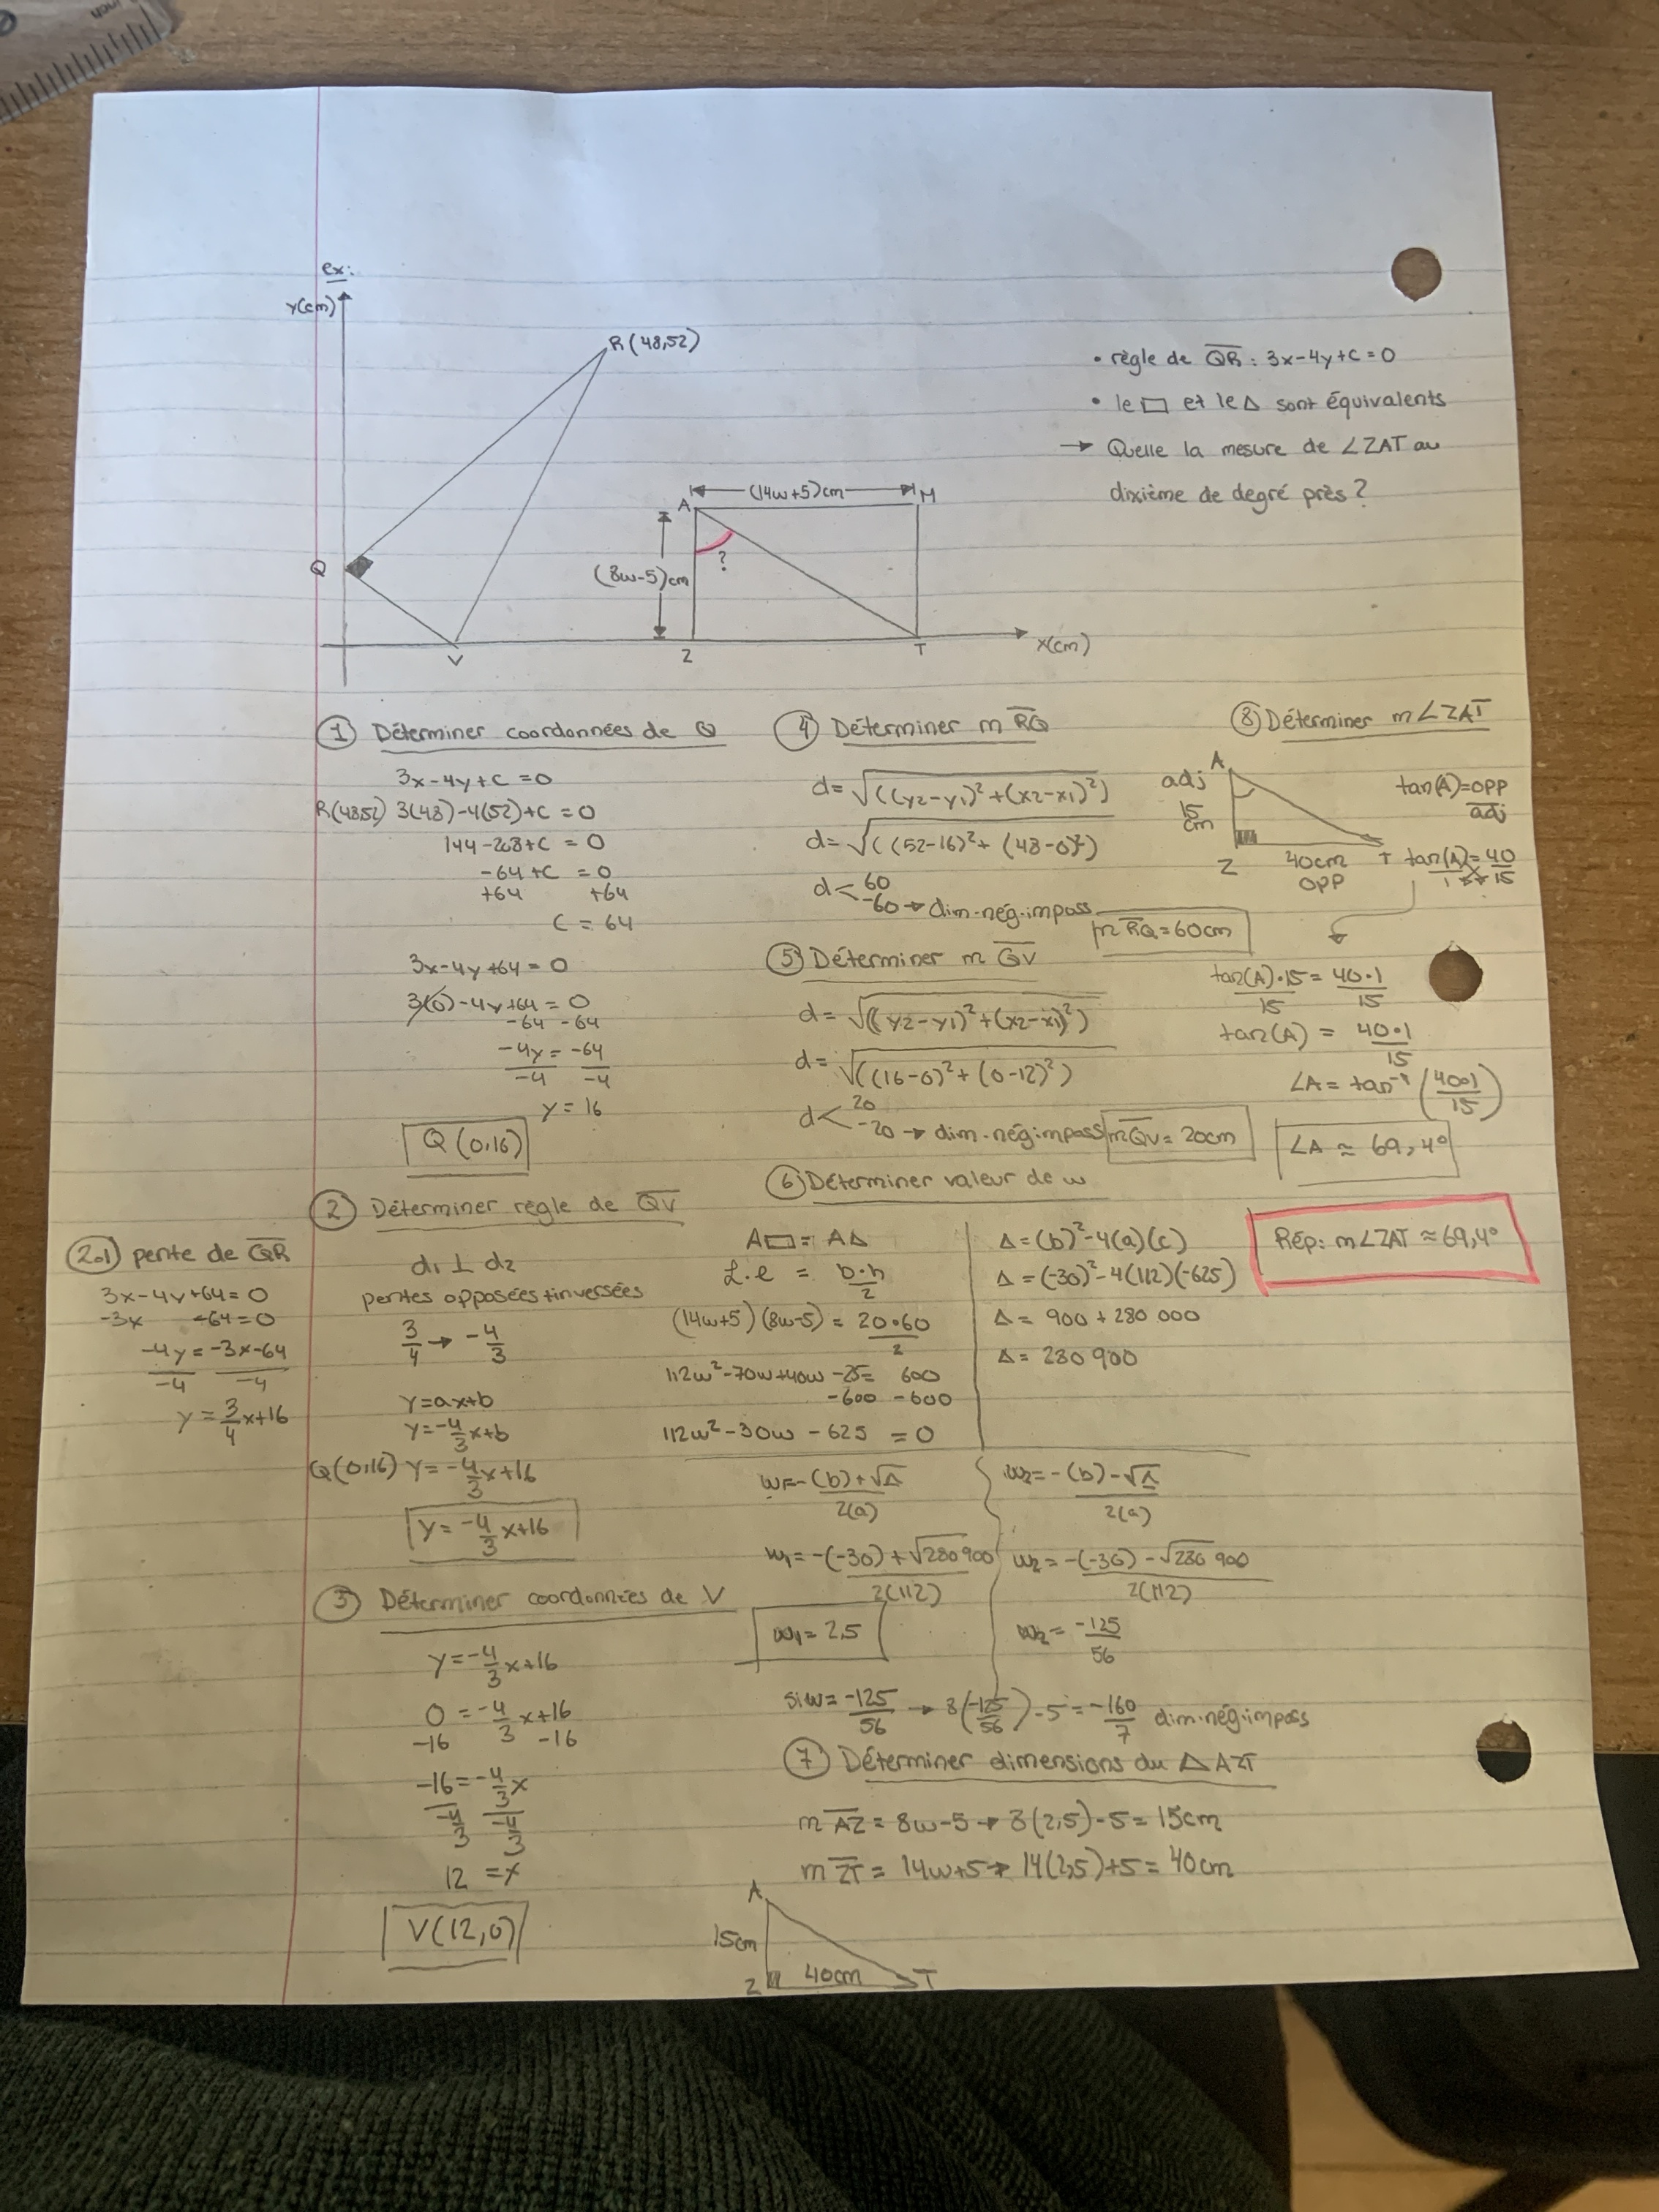 ex:
y(cm)
R(48,52)
• règle de QR : 3x-4y+C=0
• le □ et le △ sont équivalents
→ Quelle la mesure de ∠ZAT au
dixième de degré près?
(14w+5)cm
A
M
Q
(8w-5)cm
?
V
Z
T
x(cm)
① Déterminer coordonnées de Q
3x-4y+C=0
R(48,52) 3(48)-4(52)+C=0
144-208+C=0
-64+C=0
+64 +64
C=64
3x-4y+64=0
3(0)-4y+64=0
-64 -64
-4y=-64
-4 -4
y=16
Q(0,16)
② Déterminer règle de QV
2.1 pente de QR
3x-4y+64=0
-3x -64=0
-4y=-3x-64
-4 -4
y=3/4x+16
d1 ⊥ d2
pentes opposées+inversées
3/4 → -4/3
y=ax+b
y=-4/3x+b
Q(0,16) y=-4/3x+16
y=-4/3x+16
③ Déterminer coordonnées de V
y=-4/3x+16
0=-4/3x+16
-16 -16
-16=-4/3x
-4/3 -4/3
12=x
V(12,0)
④ Déterminer m RQ
d=√((y2-y1)²+(x2-x1)²)
d=√((52-16)²+(48-0)²)
d< 60
-60 → dim.nég.imposs
m RQ=60cm
⑤ Déterminer m QV
d=√((y2-y1)²+(x2-x1)²)
d=√((16-0)²+(0-12)²)
d< 20
-20 → dim.nég.imposs
m QV=20cm
⑥ Déterminer valeur de w
A□=A△
L.l = b.h/2
(14w+5)(8w-5)=20•60/2
112w²-70w+40w-25=600
-600 -600
112w²-30w-625=0
Δ=(b)²-4(a)(c)
Δ=(-30)²-4(112)(-625)
Δ=900+280 000
Δ=280 900
w1=-(b)+√Δ/2(a)
w2=-(b)-√Δ/2(a)
w1=-(-30)+√280 900/2(112)
w2=-(-30)-√280 900/2(112)
w1=2,5
w2=-125/56
si w=-125/56 → 8(-125/56)-5=-160/7 dim.nég.imposs
⑦ Déterminer dimensions du △AZT
m AZ=8w-5→8(2,5)-5=15cm
m ZT=14w+5→14(2,5)+5=40cm
A
15cm
Z
40cm
T
⑧ Déterminer m∠ZAT
A
adj
15
cm
Z
40cm
opp
T
tan(A)=opp/adj
tan(A)/1=40/15
tan(A)•15/15=40•1/15
tan(A)=40•1/15
∠A=tan⁻¹(40•1/15)
∠A≈69,4°
Rép: m∠ZAT≈69,4°